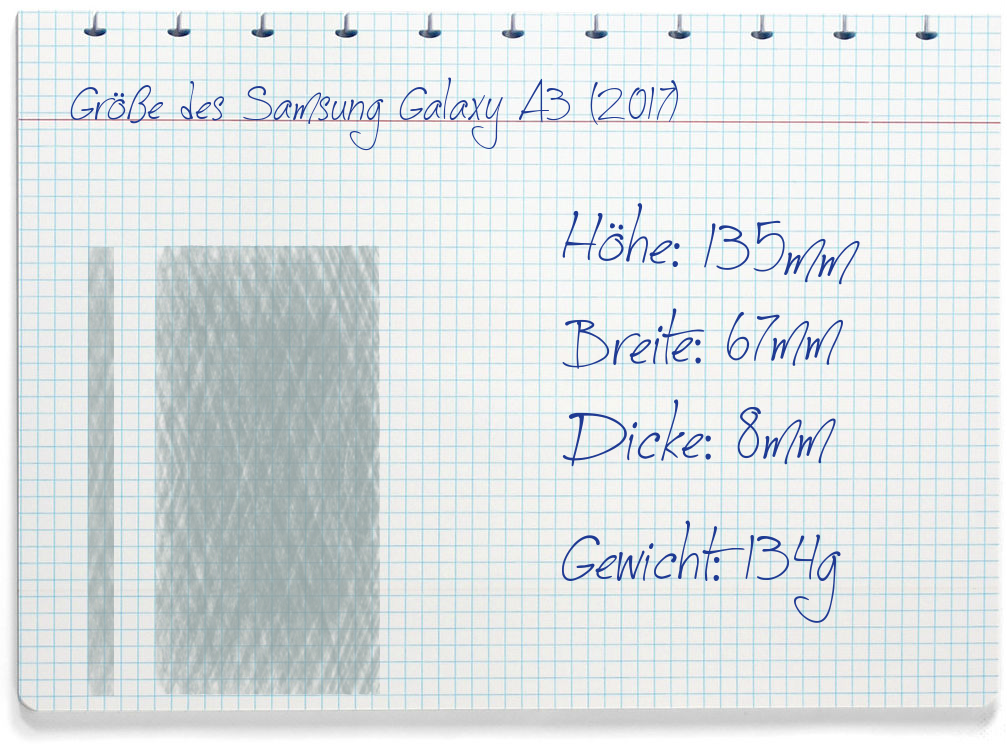 Größe des Samsung Galaxy A3 (2017)
Höhe: 135mm
Breite: 67mm
Dicke: 8mm
Gewicht: 134g